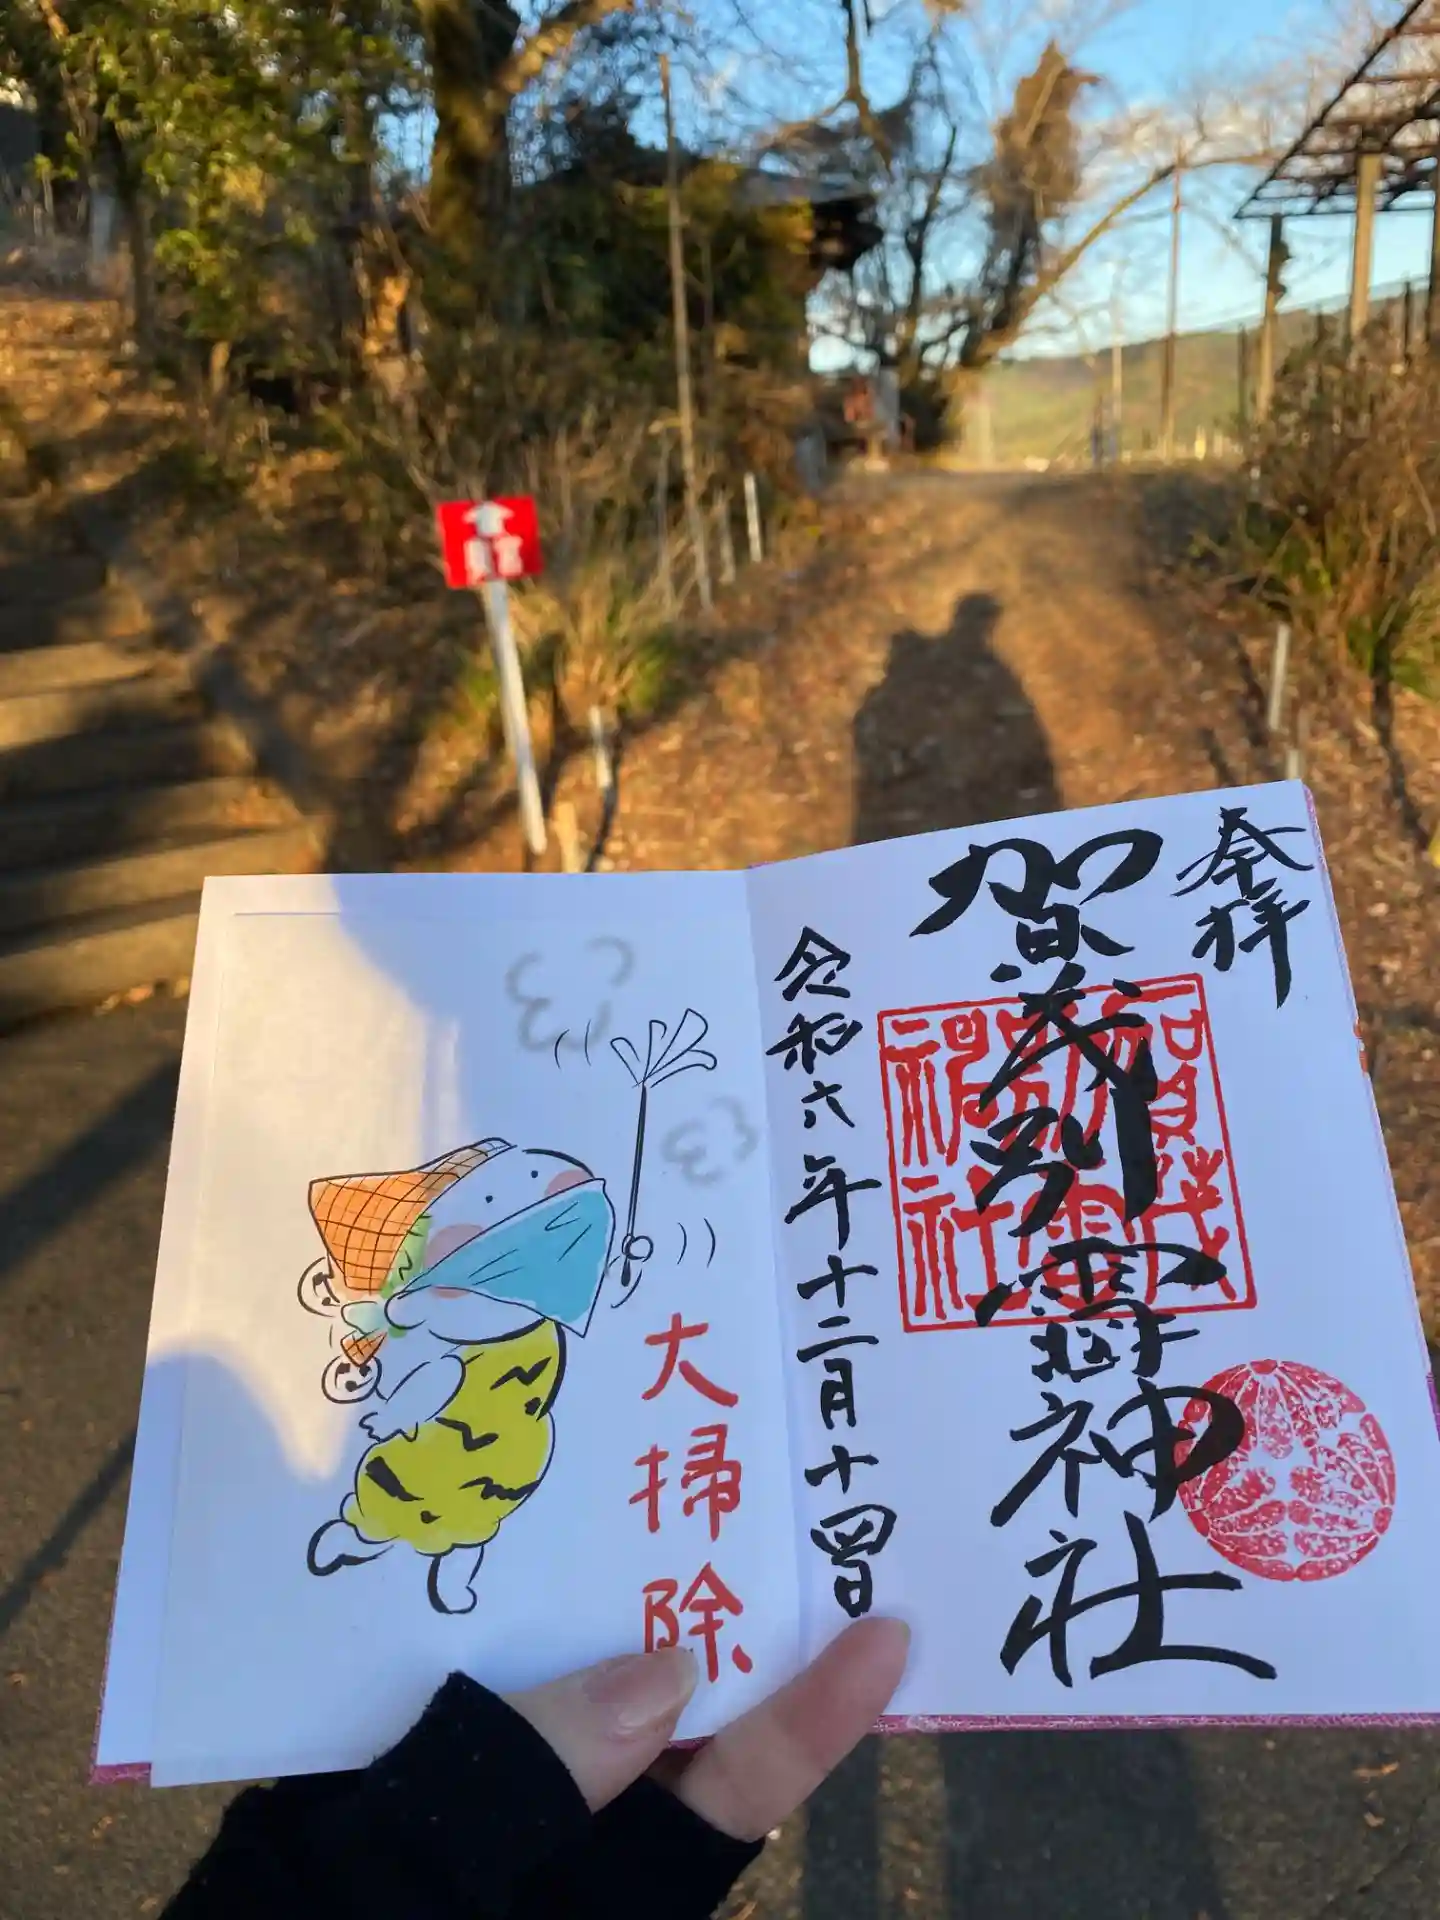 奉拝
賀茂別雷神社
賀茂
別雷
神社
令和六年十二月十四日
大掃除